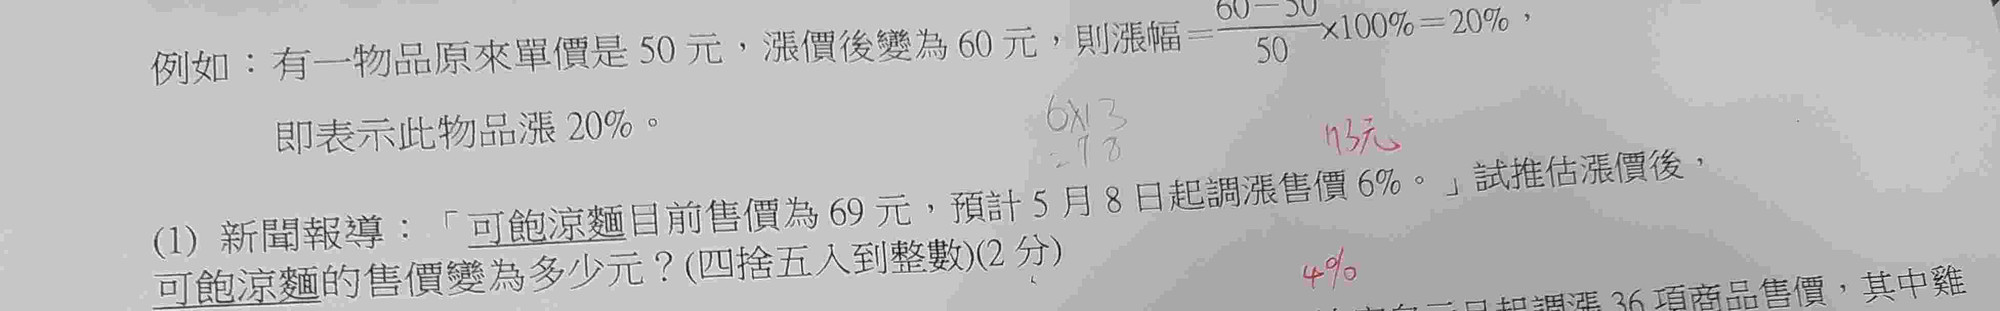 例如：有一物品原來單價是 50 元，漲價後變為 60 元，則漲幅=\frac{60－50}{50}×100%＝20%，
即表示此物品漲 20%。
6×13
=78
73元
(1) 新聞報導：「可飽涼麵目前售價為 69 元，預計 5 月 8 日起調漲售價 6%。」試推估漲價後，
可飽涼麵的售價變為多少元？(四捨五入到整數)(2 分)
4%
起調漲 36 項商品售價，其中雞